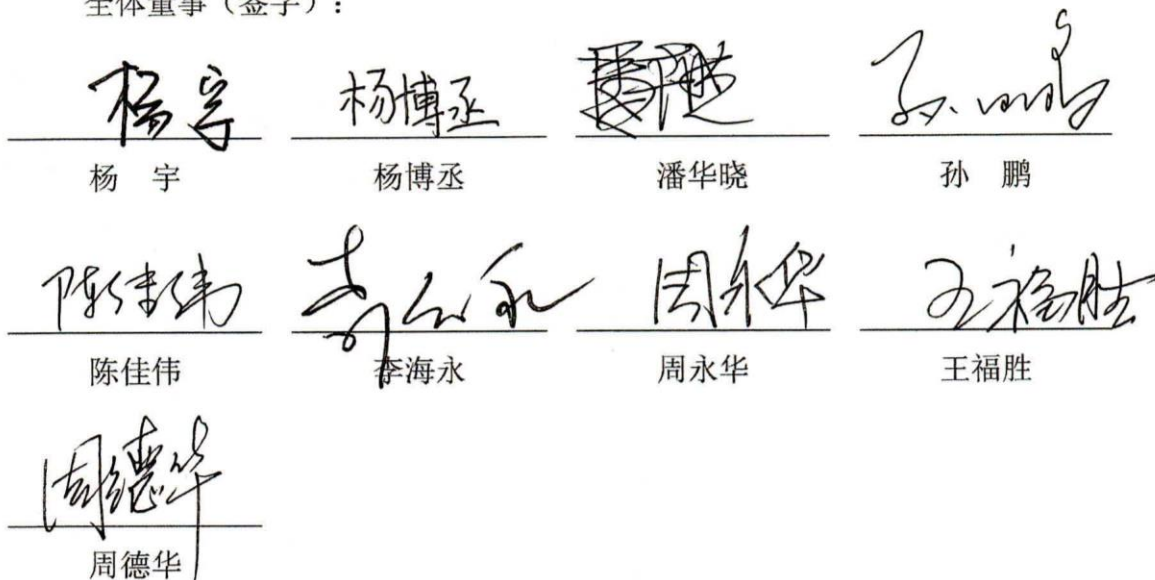 全体董事（签字）：
杨宇 杨博丞 孙鹏
杨　宇 杨博丞 潘华晓 孙　鹏
陈佳伟 李海永 周永华 王福胜
陈佳伟 李海永 周永华 王福胜
周德华
周德华